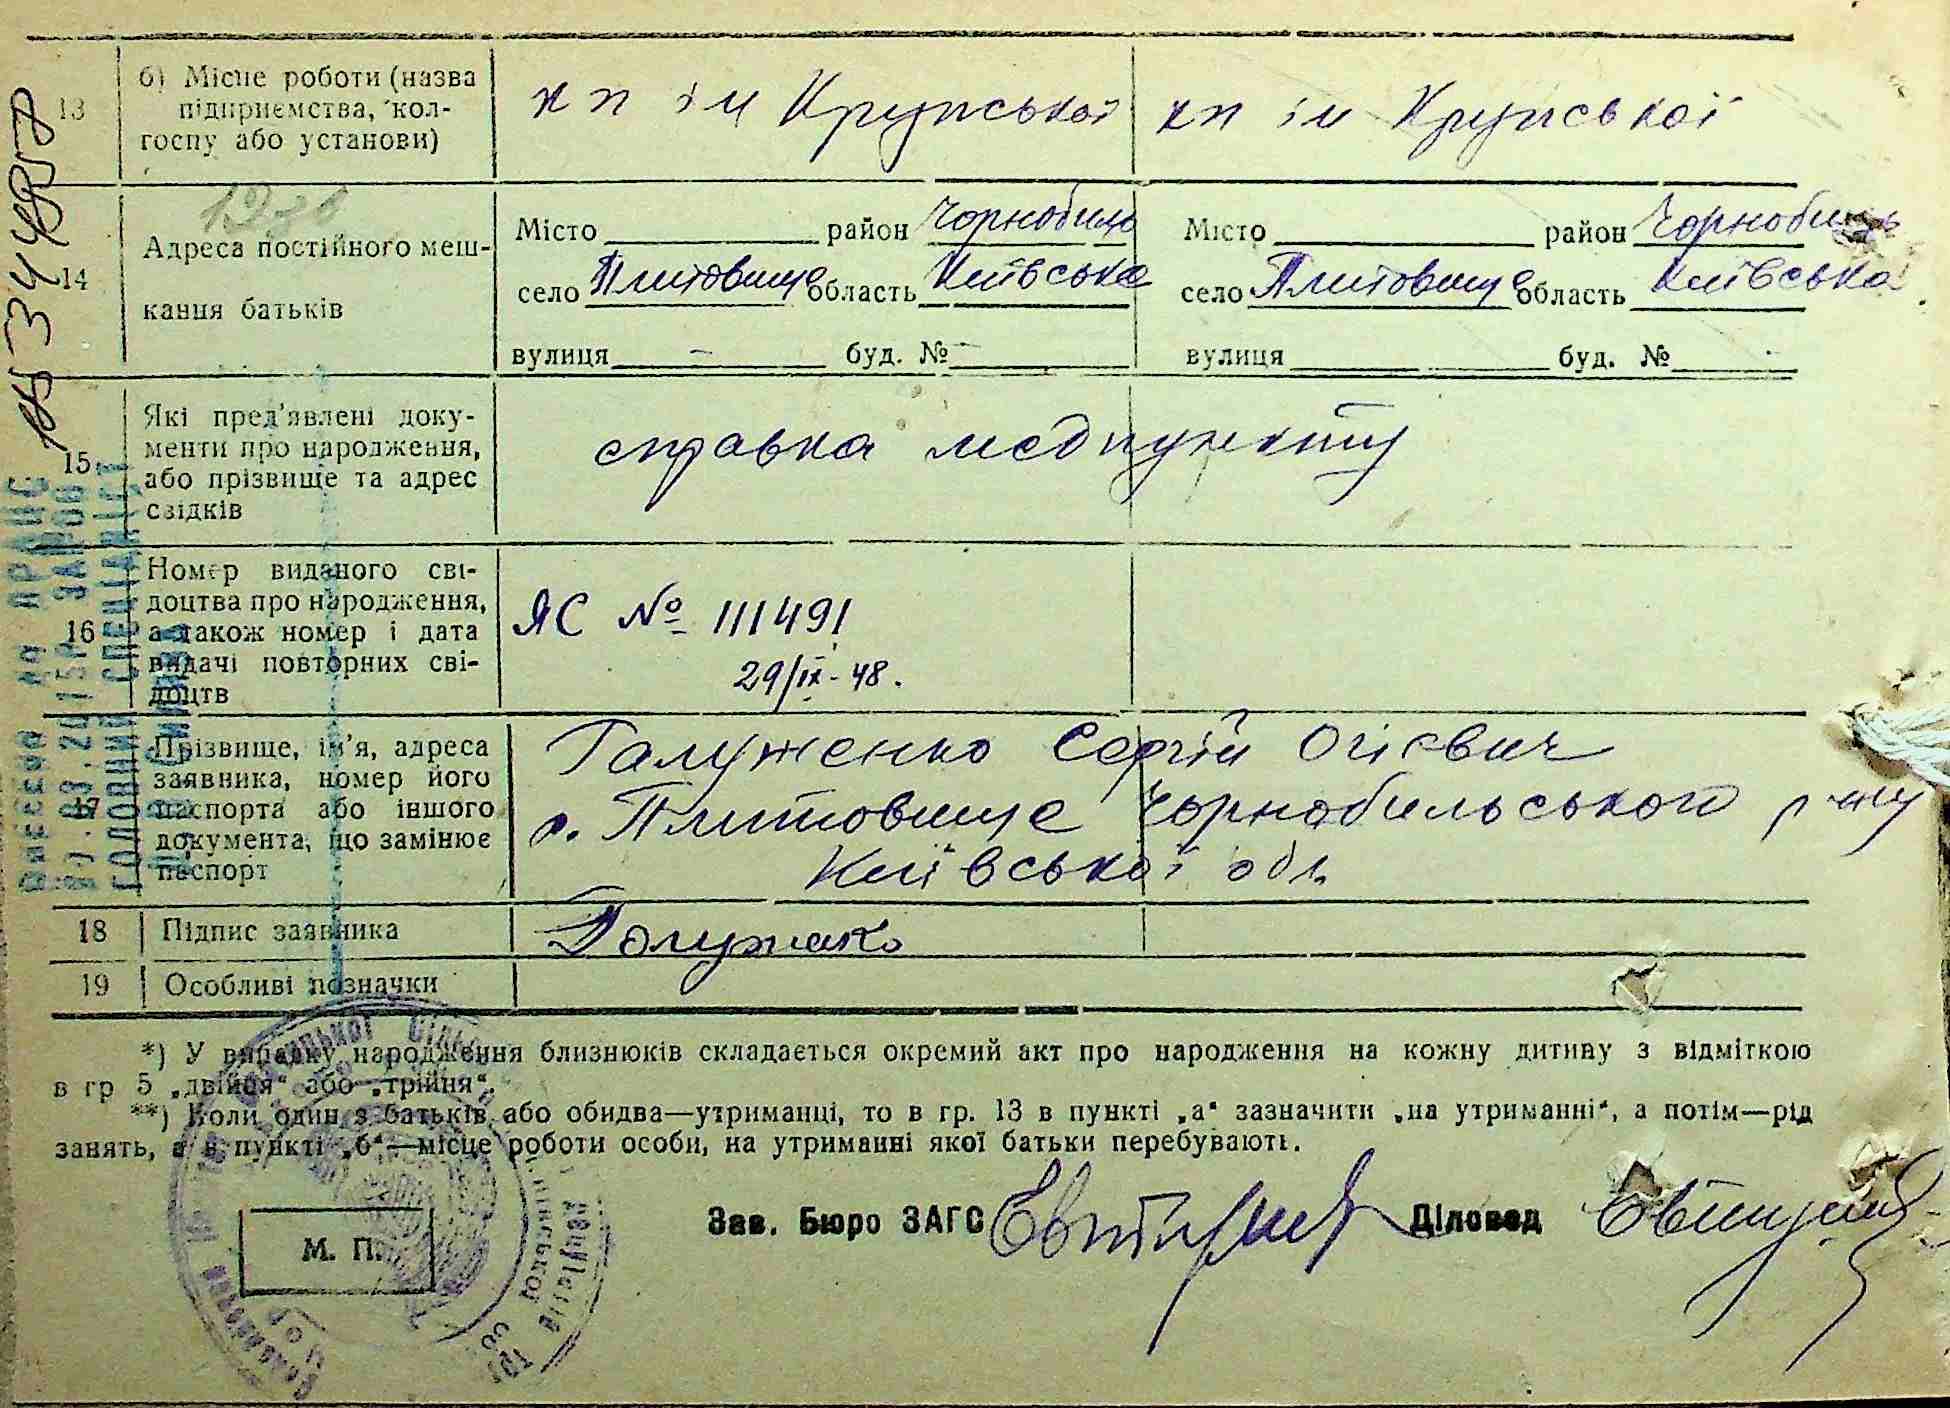 13 б) Місце роботи (назва підприємства, кол-
госпу або установи)
кп ім Крупської кп ім Крупської
14 Адреса постійного меш-
кання батьків
Місто район Чорнобиль Місто район Чорнобиль
село Плитовище область Київська село Плитовище область Київська
вулиця - буд. № - вулиця буд. №
15 Які пред'явлені доку-
менти про народження,
або прізвище та адрес
свідків
справка медпункту
16 Номер виданого сві-
доцтва про народження,
а також номер і дата
видачі повторних сві-
доцтв
ЯС № 111491
29/IX-48.
17 Прізвище, ім'я, адреса
заявника, номер його
паспорта або іншого
документа, що замінює
паспорт
Галуженко Сергій Огієвич
с. Плитовище Чорнобильського р-ну
Київської обл.
18 Підпис заявника
19 Особливі позначки
*) У випадку народження близнюків складається окремий акт про народження на кожну дитину з відміткою
в гр 5 „двійня“ або „трійня“.
**) Коли один з батьків або обидва—утриманці, то в гр. 13 в пункті „а“ зазначити „на утриманні“, а потім—рід
занять, а в пункті „б“—місце роботи особи, на утриманні якої батьки перебувають.
Зав. Бюро ЗАГС Діловод
М. П.
ГОЛОВНИЙ СПЕЦІАЛІСТ